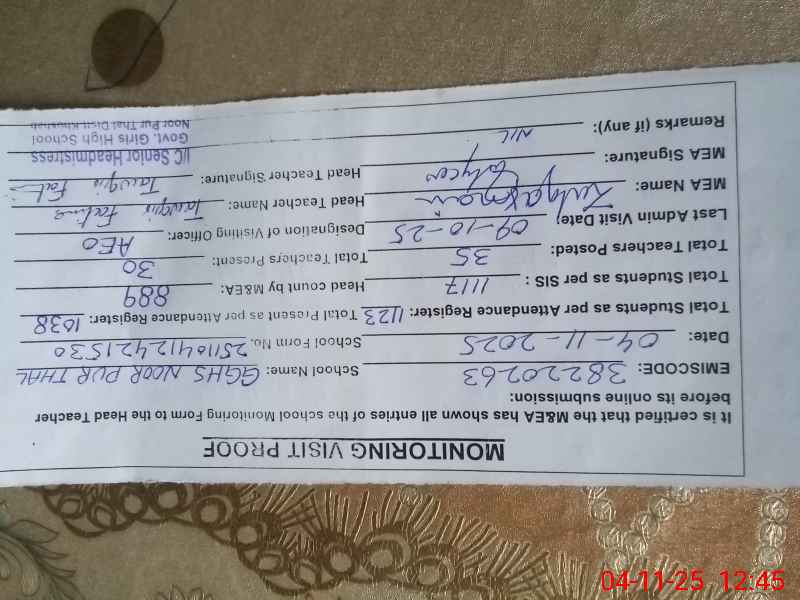 MONITORING VISIT PROOF
It is certified that the M&EA has shown all entries of the school Monitoring Form to the Head Teacher
before its online submission:
EMISCODE: 38220263 School Name: GGHS NOOR PUR THAL
Date: 04-11-2025 School Form No. 25110412421530
Total Students as per Attendance Register: 1123 Total Present as per Attendance Register: 1038
Total Students as per SIS: 1117 Head count by M&EA: 889
Total Teachers Posted: 35 Total Teachers Present: 30
Last Admin Visit Date: 09-10-25 Designation of Visiting Officer: AEO
MEA Name: Head Teacher Name:
MEA Signature: Head Teacher Signature:
Remarks (if any): NIL
I/C Senior Headmistress
Govt. Girls High School
Noor Pur Thal Distt. Khushab
04-11-25 12:45